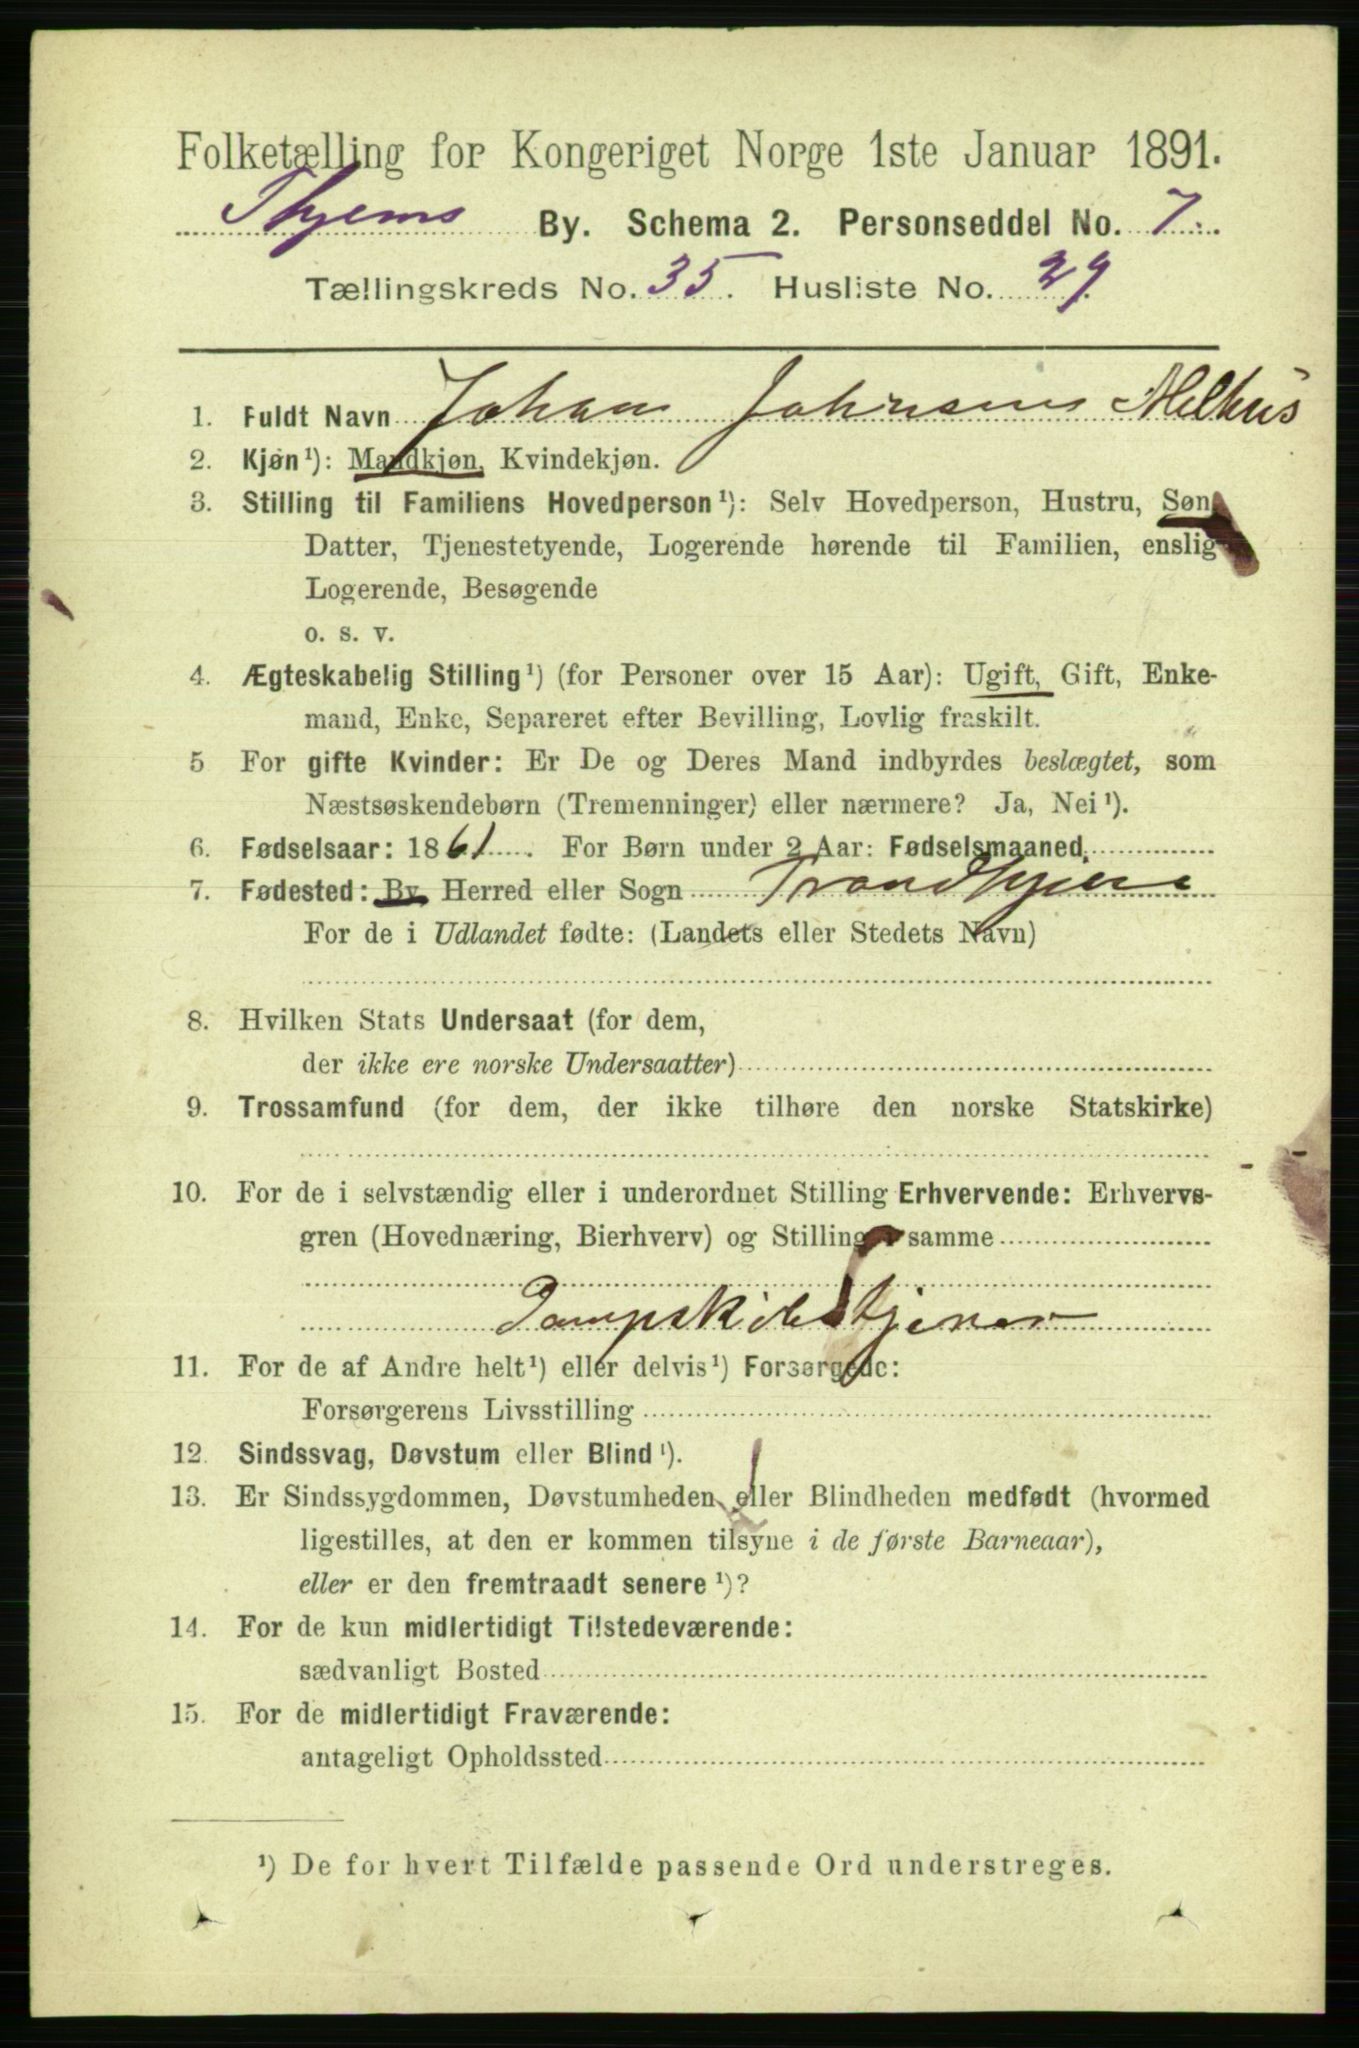 Folketælling for Kongeriget Norge 1ste Januar 1891.
Thjems By. Schema 2. Personseddel No. 7.
Tællingskreds No. 35. Husliste No. 29.
1. Fuldt Navn Johan Johnsen Melhus
2. Kjøn¹): Mandkjøn, Kvindekjøn.
3. Stilling til Familiens Hovedperson¹): Selv Hovedperson, Hustru, Søn,
Datter, Tjenestetyende, Logerende hørende til Familien, enslig
Logerende, Besøgende
o. s. v.
4. Ægteskabelig Stilling¹) (for Personer over 15 Aar): Ugift, Gift, Enke-
mand, Enke, Separeret efter Bevilling, Lovlig fraskilt.
5 For gifte Kvinder: Er De og Deres Mand indbyrdes beslægtet, som
Næstsøskendebørn (Tremenninger) eller nærmere? Ja, Nei¹).
6. Fødselsaar: 1861. For Børn under 2 Aar: Fødselsmaaned.
7. Fødested: By, Herred eller Sogn Trondhjem
For de i Udlandet fødte: (Landets eller Stedets Navn)
8. Hvilken Stats Undersaat (for dem,
der ikke ere norske Undersaatter)
9. Trossamfund (for dem, der ikke tilhøre den norske Statskirke)
10. For de i selvstændig eller i underordnet Stilling Erhvervende: Erhvervs-
gren (Hovednæring, Bierhverv) og Stilling i samme
Dampskibstjener
11. For de af Andre helt¹) eller delvis¹) Forsørgede:
Forsørgerens Livsstilling
12. Sindssvag, Døvstum eller Blind¹).
13. Er Sindssygdommen, Døvstumheden eller Blindheden medfødt (hvormed
ligestilles, at den er kommen tilsyne i de første Barneaar),
eller er den fremtraadt senere¹)?
14. For de kun midlertidigt Tilstedeværende:
sædvanligt Bosted
15. For de midlertidigt Fraværende:
antageligt Opholdssted
¹) De for hvert Tilfælde passende Ord understreges.